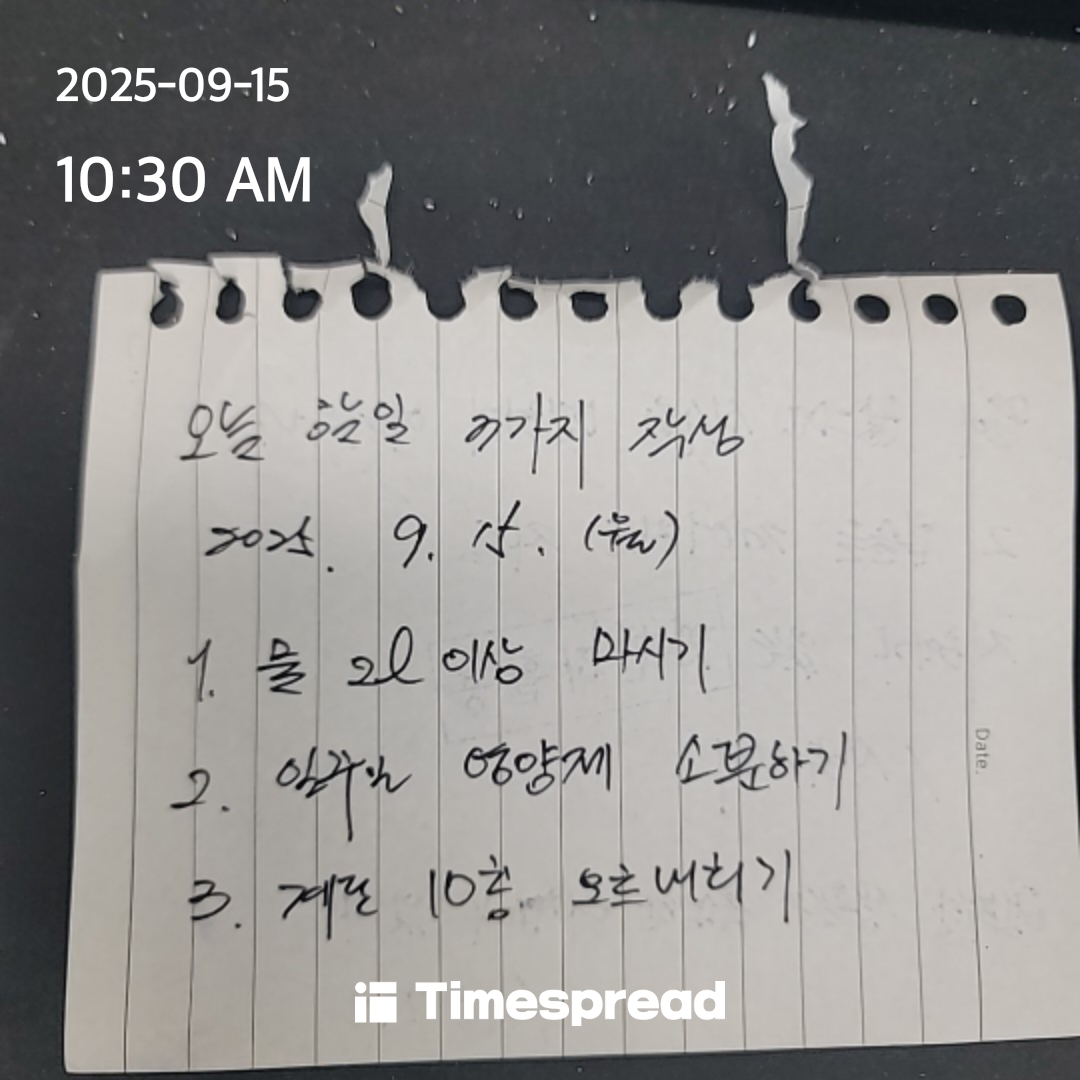 2025-09-15
10:30 AM
오늘 할일 3가지 작성
2025. 9. 15. (월)
1. 물 2l 이상 마시기
2. 일주일 영양제 소분하기
3. 계단 10층 오르내리기
Date.
Timespread